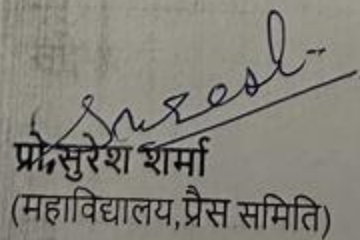 Suresh
प्रो.सुरेश शर्मा
(महाविद्यालय,प्रैस समिति)